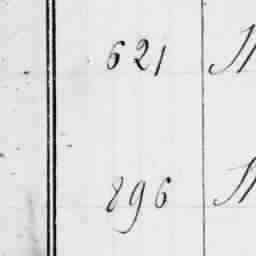 621
896